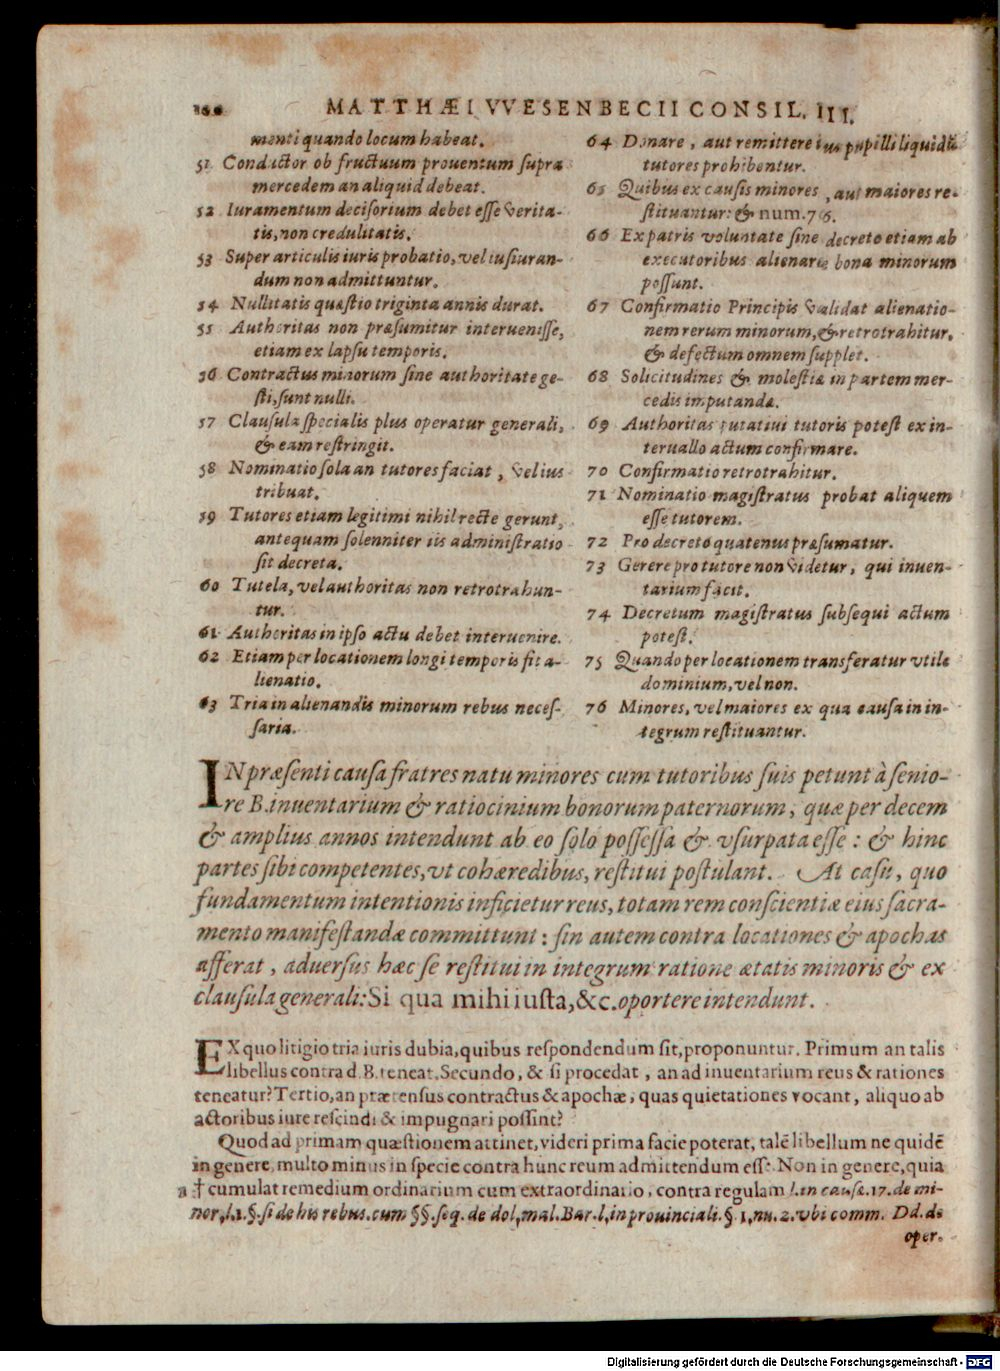 MATTHÆI VVESENBECII CONSIL. III.
menti quando locum habeat.
51 Conductor ob fructuum prouentum supra
mercedem an aliquid debeat.
52 Iuramentum decisorium debet esse verita-
tis, non credulitatis.
53 Super articulis iuris probatio, vel iusiuran-
dum non admittuntur.
54 Nullitatis quæstio triginta annis durat.
55 Authoritas non præsumitur interuenisse,
etiam ex lapsu temporis.
56 Contractus minorum sine authoritate ge-
sti, sunt nulli.
57 Clausula specialis plus operatur generali,
& eam restringit.
58 Nominatio sola an tutores faciat, vel ius
tribuat.
59 Tutores etiam legitimi nihil recte gerunt,
antequam solenniter iis administratio
sit decreta.
60 Tutela, vel authoritas non retrotrahun-
tur.
61 Authoritas in ipso actu debet interuenire.
62 Etiam per locationem longi temporis fit a-
lienatio.
63 Tria in alienandis minorum rebus neces-
saria.
64 Donare, aut remittere ius pupilli liquidū
tutores prohibentur.
65 Quibus ex causis minores, aut maiores re-
stituantur: & num. 76.
66 Ex patris voluntate sine decreto etiam ab
executoribus alienare bona minorum
possunt.
67 Confirmatio Principis validat alienatio-
nem rerum minorum, & retrotrahitur,
& defectum omnem supplet.
68 Solicitudines & molestiæ in partem mer-
cedis imputandæ.
69 Authoritas putatiui tutoris potest ex in-
teruallo actum confirmare.
70 Confirmatio retrotrahitur.
71 Nominatio magistratus probat aliquem
esse tutorem.
72 Pro decreto quatenus præsumatur.
73 Gerere pro tutore non videtur, qui inuen-
tarium facit.
74 Decretum magistratus subsequi actum
potest.
75 Quando per locationem transferatur vtile
dominium, vel non.
76 Minores, vel maiores ex qua causa in in-
tegrum restituantur.
IN præsenti causa fratres natu minores cum tutoribus suis petunt à senio-
re B. inuentarium & ratiocinium bonorum paternorum, quæ per decem
& amplius annos intendunt ab eo solo possessa & vsurpata esse: & hinc
partes sibi competentes, vt cohæredibus, restitui postulant. At casu, quo
fundamentum intentionis inficietur reus, totam rem conscientiæ eius sacra-
mento manifestandæ committunt: sin autem contra locationes & apochas
afferat, aduersus hæc se restitui in integrum ratione ætatis minoris & ex
clausula generali: Si qua mihi iusta, &c. oportere intendunt.
EX quo litigio tria iuris dubia, quibus respondendum sit, proponuntur. Primum an talis
libellus contra d. B. teneat. Secundo, & si procedat, an ad inuentarium reus & rationes
teneatur? Tertio, an prætensus contractus & apochæ, quas quietationes vocant, aliquo ab
actoribus iure rescindi & impugnari possint?
Quod ad primam quæstionem attinet, videri prima facie poterat, talē libellum ne quidē
in genere, multo minus in specie contra hunc reum admittendum esse. Non in genere, quia
† cumulat remedium ordinarium cum extraordinario, contra regulam l. in causæ. 17. de mi-
nor, l. 1. §. si de his rebus. cum §§. seq. de dol, mal. Bar. l, in prouinciali. §. 1, nu. 2. vbi comm. Dd. de
oper.
Digitalisierung gefördert durch die Deutsche Forschungsgemeinschaft - DFG